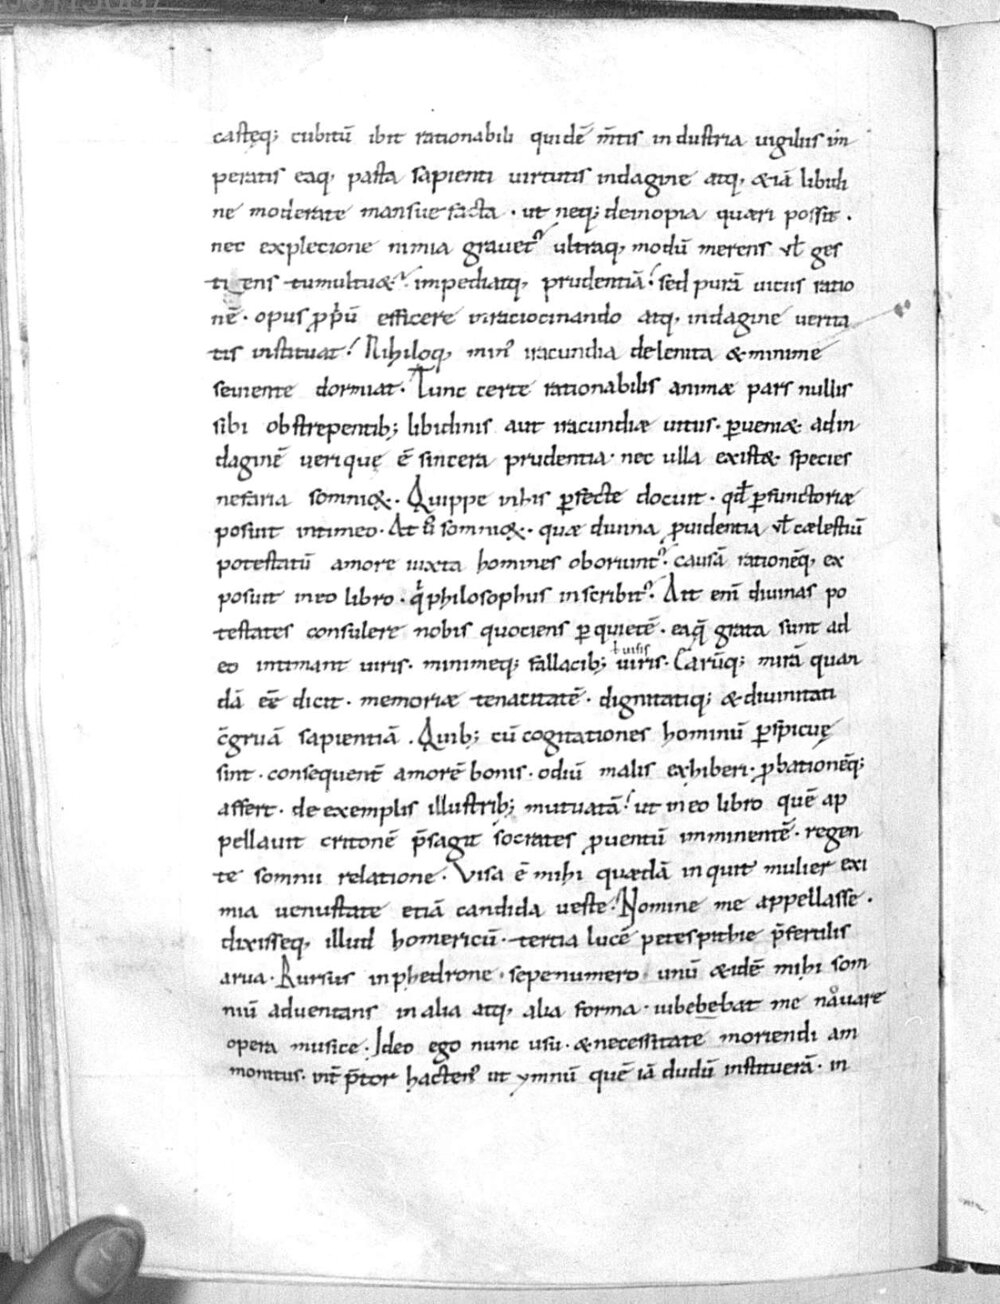 castęq; cubitū ibit rationabili quidē m̄tis industria uigiliis im
peratis eaq, pasta sapienti uirtutis indagine atq, &iā libidi
ne moderate mansuefacta · ut neq; deinopia quæri possit .
nec explecione nimia grauet᷒ ultraq, modū merens ut̄ ges
tiens tumultuæ impediatq, prudentiā sed purā uicus ratio
nē · opus ꝓp̄ū efficere inraciocinando atq, indagine uerita
tis instituat Nihiloq, min᷒ iracundia delenita & minime
seuiente dormiat · Tunc certe rationabilis animæ pars nullis
sibi obstrepentib; libidinis aut iracundiæ uitus · ꝑueni& adin
daginē ueri quę ē sincera prudentia · nec ulla exist& species
nefaria somni& · Quippe inhis ꝑfecte docuit · qđ ꝑfunctoriæ
posuit intimeo · At u̇ somni& · quæ diuina ꝓuidentia ut̄ cælestiū
potestatū amore iuxta homines oboriunt᷒ causā rationēq, ex
posuit ineo libro · q̇ philosophus inscribit᷒ · Ait enī diuinas po
testates consulere nobis quociens ꝑ quietē · eaq̄ grata sunt ad
eo intimant uiris · minimeq; fallacib; uiris · Carūq; mirā quan
ł uisis
dā eē dicit · memoriæ tenacitatē · dignitatiq; & diuinitati
c̄gruā sapientiā . Quib; cū cogitationes hominū ꝑspicuę
sint · consequent̄ amorē bonis · odiū malis exhiberi · ꝓbationēq;
affert · de exemplis illustrib; mutuatā ut ineo libro quē ap
pellauit critonē p̄sagit socrates ꝓuentū imminentē · regen
te somnii relatione · Visa ē mihi quædā inquit mulier exi
mia uenustate etiā candida ueste Nomine me appellasse .
dixisseq, illud homericū · tertia lucē petes pithie p̄fertilis
arua · Rursus inphedrone · sepenumero unū & idē mihi som
niū aduentans in alia atq, alia forma · iubebebat me nauare
opera musice . Ideo ego nunc usu · & necessitate moriendi am
monitus · uit̄ p̄tor hacten᷒ ut ymnū quē iā dudū instituerā · in